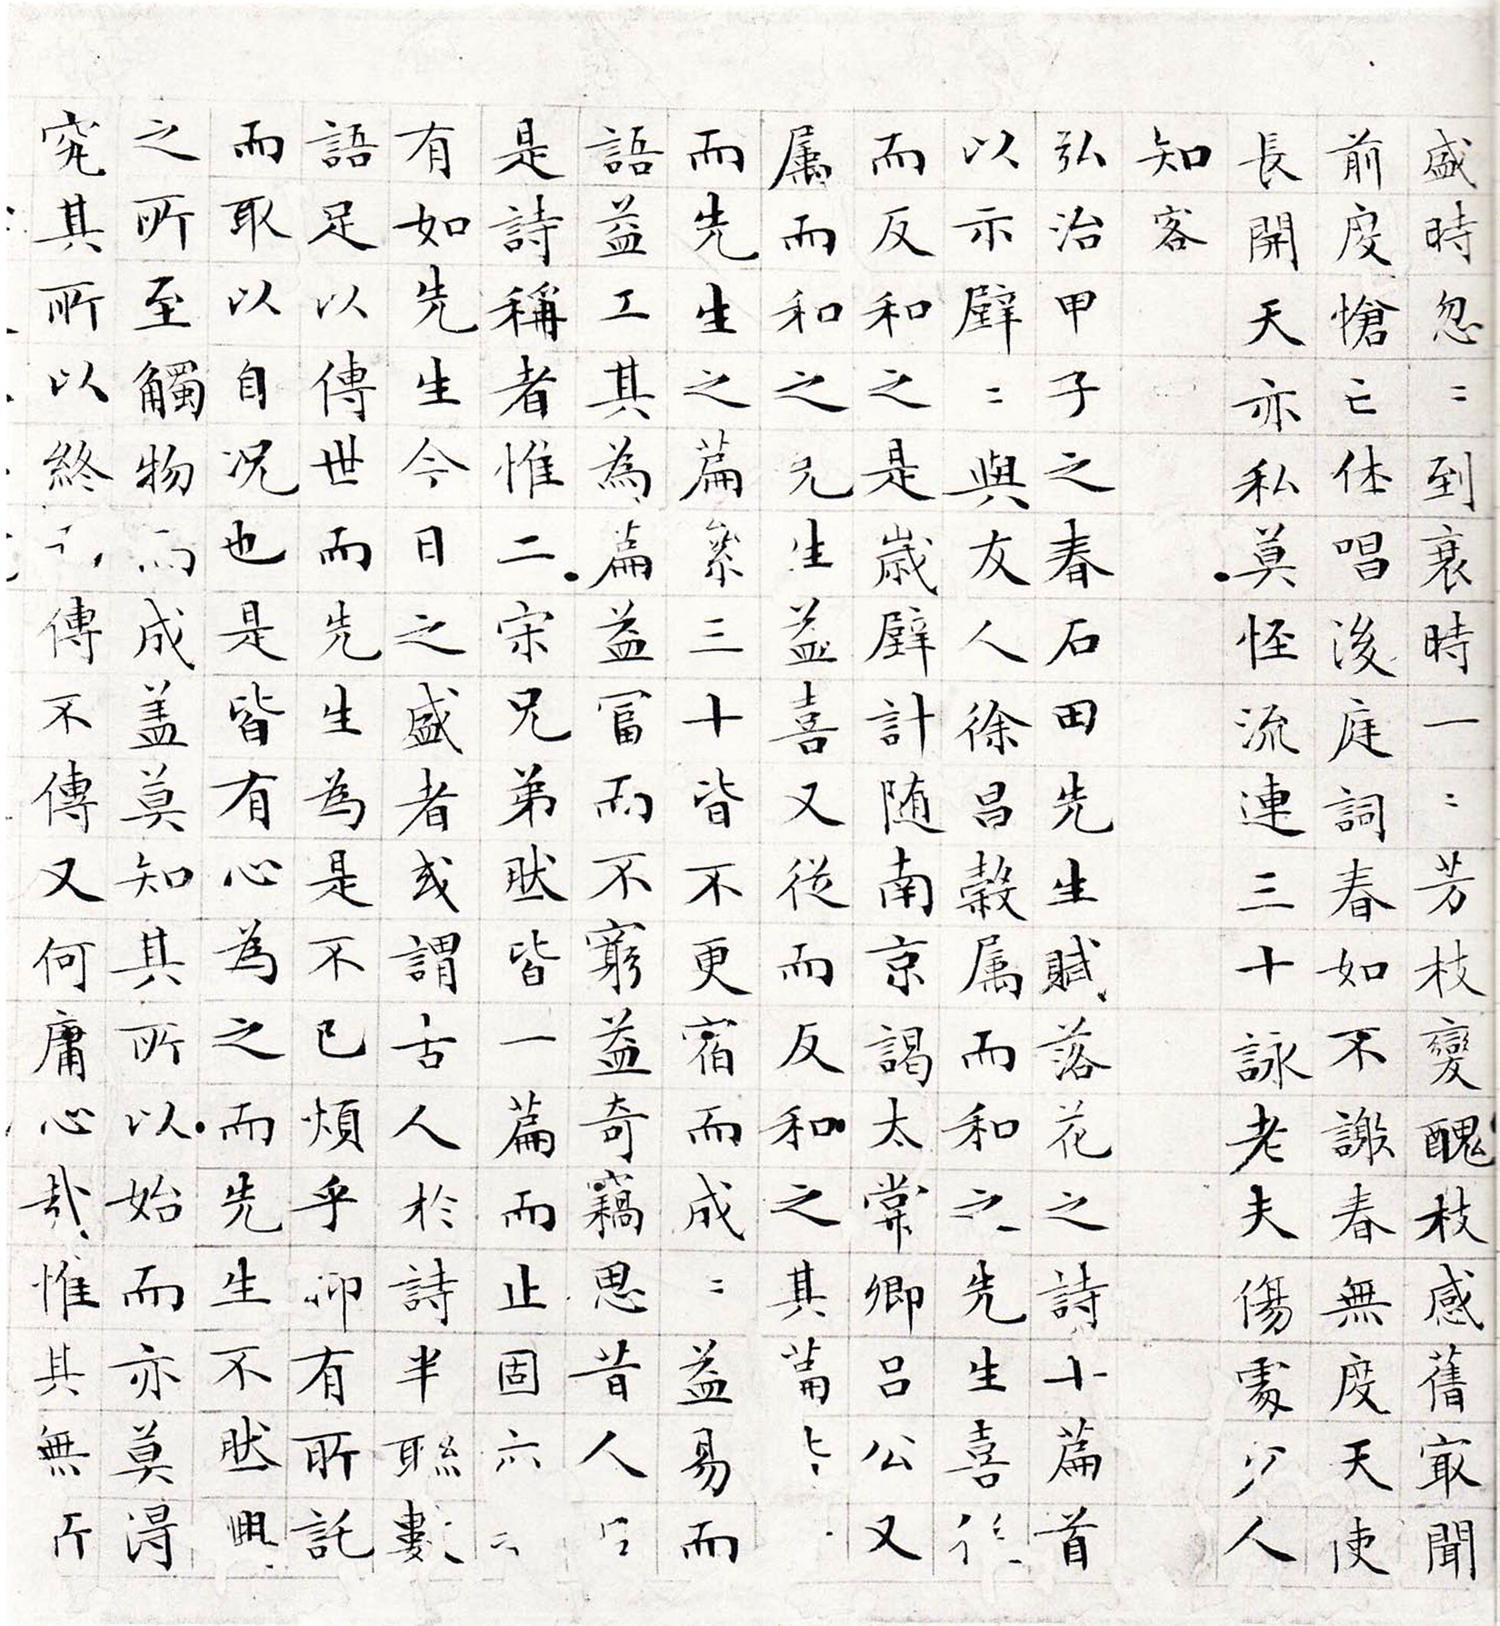 盛時忽〻到衰時一〻芳枝變醜枝感舊㝡聞
前度愴亡休唱後庭詞春如不謝春無度天使
長開天亦私莫恠流連三十詠老夫傷處少人
知客
弘治甲子之春石田先生賦落花之詩十篇首
以示璧〻與友人徐昌榖属而和之先生喜從
而反和之是歳璧計随南京謁太常卿吕公又
属而和之先生益喜又從而反和之其篇皆
而先生之篇累三十皆不更宿而成〻益易而
語益工其為篇益冨而不窮益奇竊思昔人
是詩稱者惟二宋兄弟然皆一篇而止固六
有如先生今日之盛者或謂古人於詩半聮數
語足以傳世而先生為是不已煩乎抑有所託
而取以自况也是皆有心為之而先生不然興
之所至觸物而成盖莫知其所以始而亦莫得
究其所以終 傳不傳又何庸心哉惟其無所